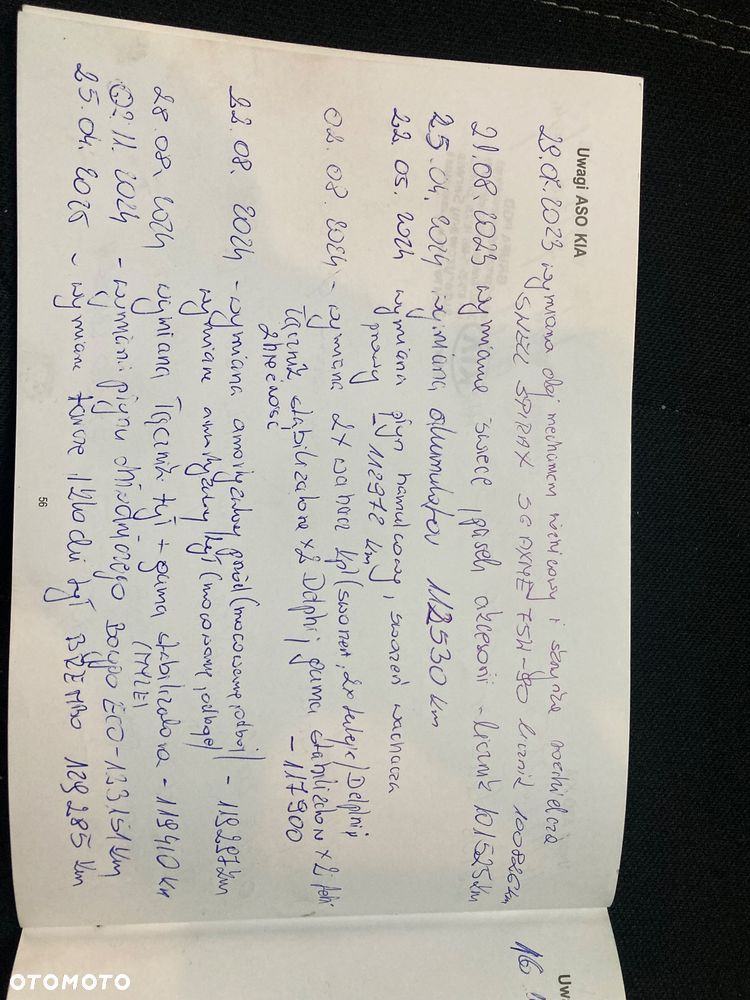 Uwagi ASO KIA
28.07.2023 wymiana olej mechanizm różnicowy i skrzynia rozdzielcza
SHELL SPIRAX S6 AXME 75W-90 licznik 100726 km
21.08.2023 wymiana świece, pasek akcesorii - licznik 101525 km
25.04.2024 wymiana akumulator 112530 km
22.05.2024 wymiana płyn hamulcowy, sworzeń wachacza
prawy - 112972 km
02.08.2024 - wymiana 2x wahacz kpl (sworzeń, 2x tuleje) Delphi
Łącznik stabilizatora x2 Delphi, guma stabilizatora x2
zbieżność - 117900
22.08.2024 - wymiana amortyzatory przód (mocowanie, odboj)
wymiana amortyzatory tył (mocowanie, odboje) - 119297 km
28.08.2024 wymiana Łącznik tył + guma stabilizatora - 119410 km
02.11.2024 - wymiana płynu chłodniczego Boygo ECO - 123151 km
25.04.2025 - wymiana tarcze i klocki tył BREMBO 129285 km
56
16.
Uw
OTOMOTO